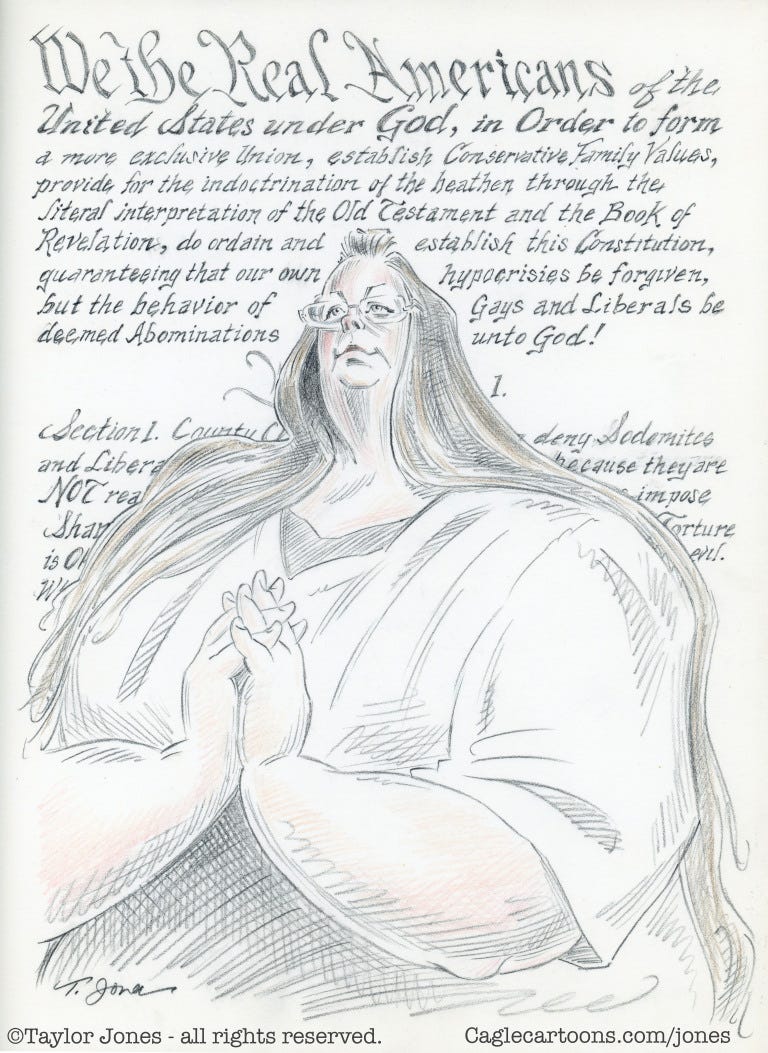 We the Real Americans of the
United States under God, in Order to form
a more exclusive Union, establish Conservative Family Values,
provide for the indoctrination of the heathen through the
literal interpretation of the Old Testament and the Book of
Revelation, do ordain and establish this Constitution,
guaranteeing that our own hypocrisies be forgiven,
but the behavior of Gays and Liberals be
deemed Abominations unto God!
1.
Section 1. County Cl deny Sodomites
and Libera because they are
NOT rea impose
Shar Torture
is O evil.
T. Jones
©Taylor Jones - all rights reserved. Caglecartoons.com/jones